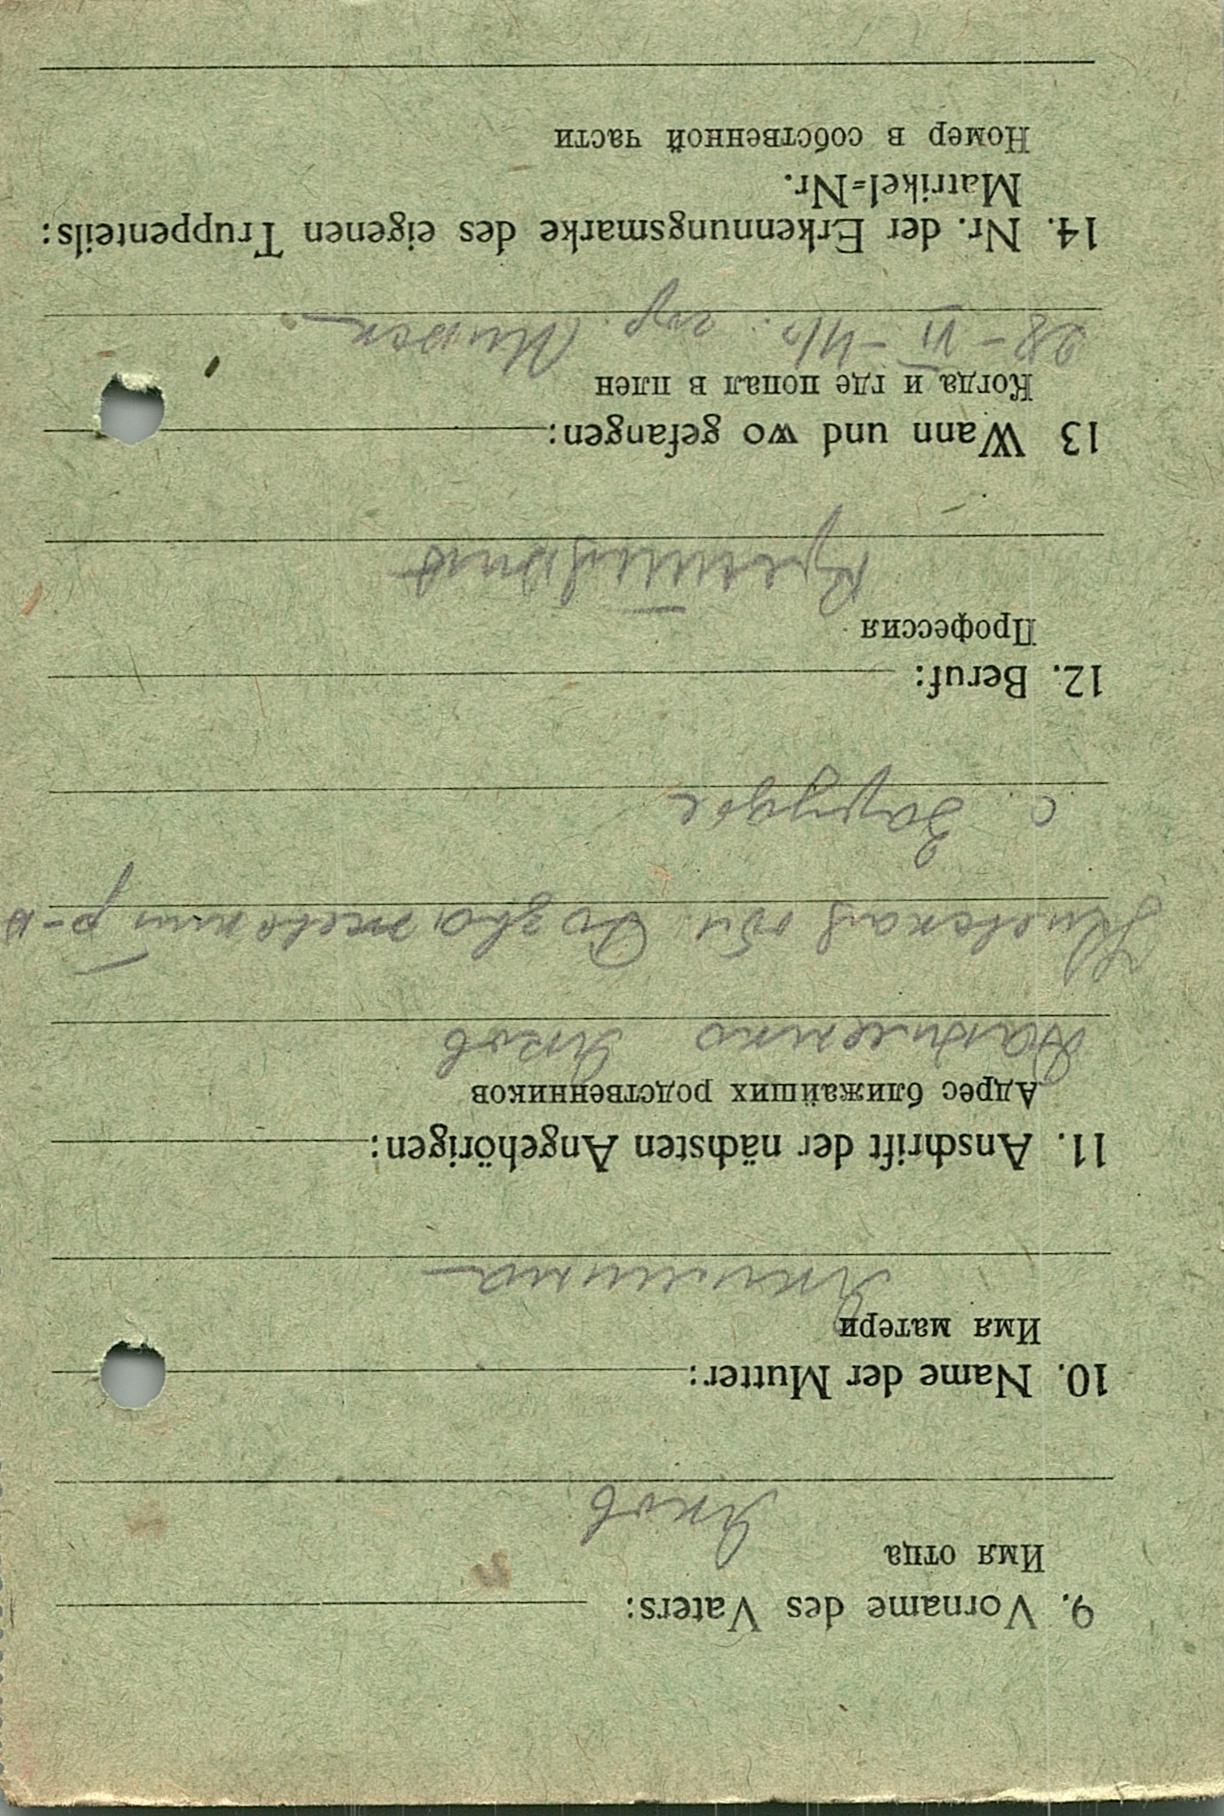 9. Vorname des Vaters:
Имя отца
Яков
10. Name der Mutter:
Имя матери
Якилина
11. Anschrift der nächsten Angehörigen:
Адрес ближайших родственников
Яков
Киевская обл. Розважевский р-н
с.
12. Beruf:
Профессия
13 Wann und wo gefangen:
Когда и где попал в плен
28-VI-41 гор. Минск
14. Nr. der Erkennungsmarke des eigenen Truppenteils:
Matrikel=Nr.
Номер в собственной части